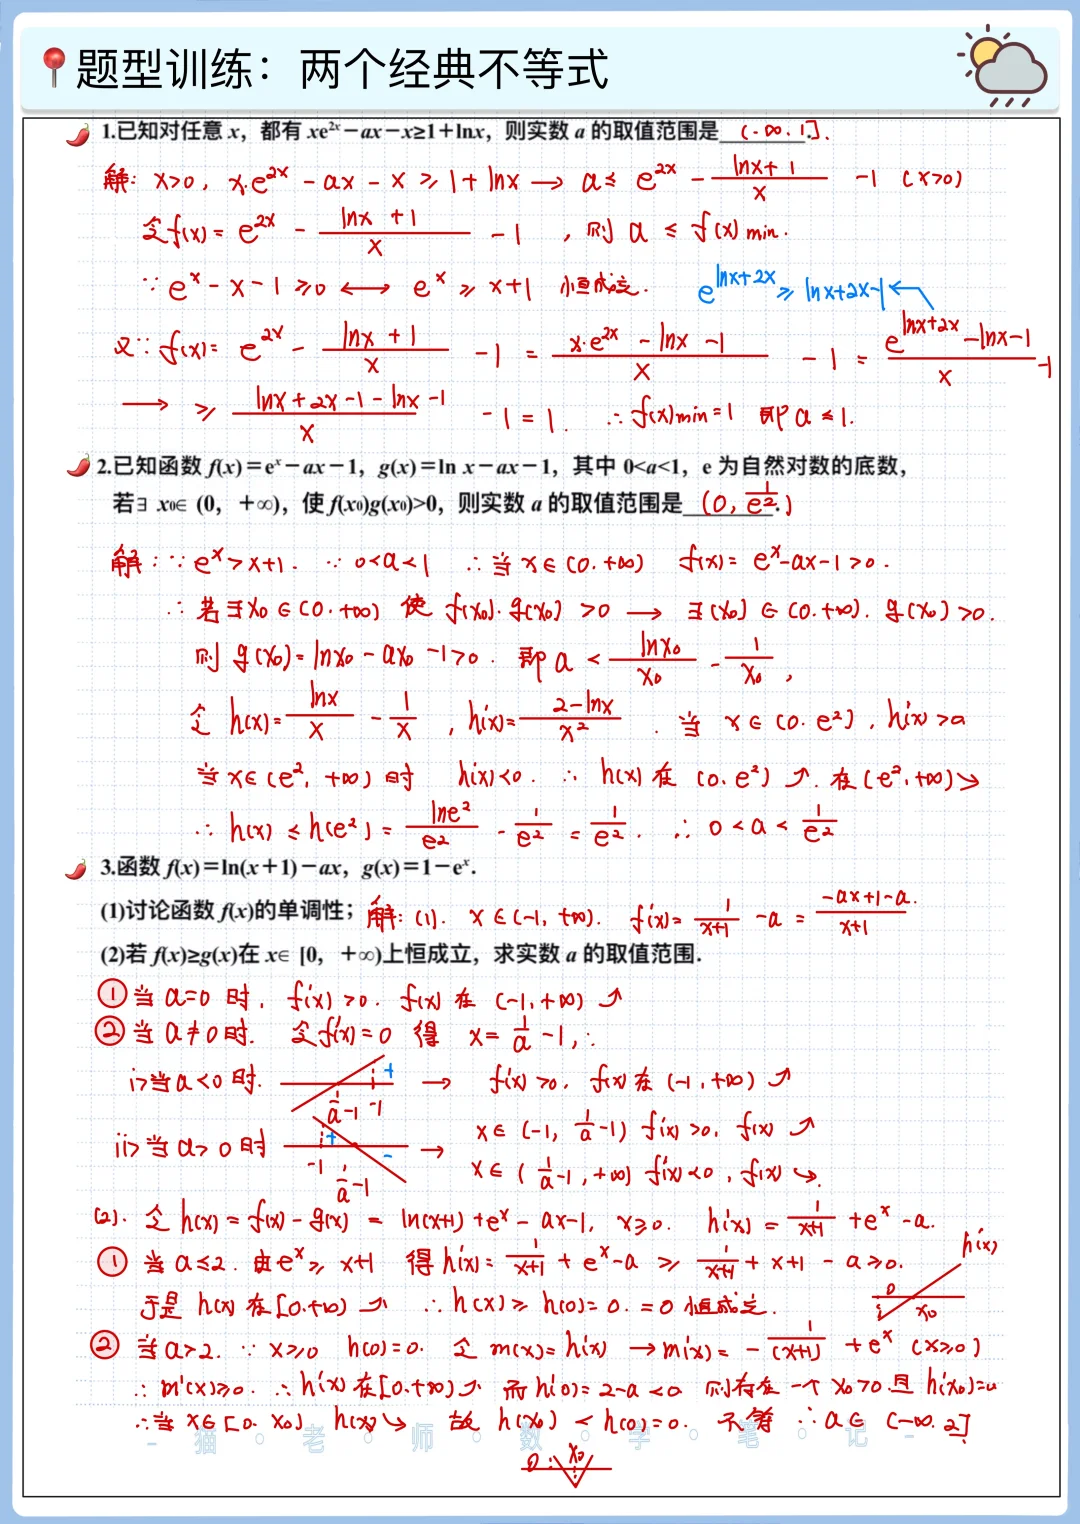 题型训练：两个经典不等式
1.已知对任意 x，都有 xe²ˣ－ax－x≥1＋lnx，则实数 a 的取值范围是 (-∞.1].
解: x>0, x·e^{2x} - ax - x ≥ 1 + lnx → a ≤ e^{2x} - \frac{lnx+1}{x} - 1 (x>0)
令f(x)= e^{2x} - \frac{lnx+1}{x} - 1 , 则 a ≤ f(x)min.
∵ e^x - x - 1 ≥0 ⟷ e^x ≥ x+1 恒成立. e^{lnx+2x} ≥ lnx+2x-1
又∵ f(x)= e^{2x} - \frac{lnx+1}{x} - 1 = \frac{x·e^{2x} - lnx - 1}{x} - 1 = \frac{e^{lnx+2x} - lnx - 1}{x} - 1
→ ≥ \frac{lnx+2x-1-lnx-1}{x} - 1 = 1. ∴ f(x)min=1 即 a ≤ 1.
2.已知函数 f(x)＝eˣ－ax－1，g(x)＝ln x－ax－1，其中 0<a<1，e 为自然对数的底数，
若∃ x₀∈ (0，＋∞)，使 f(x₀)g(x₀)>0，则实数 a 的取值范围是 (0, \frac{1}{e^2}).
解: ∵ e^x > x+1. ∵ 0<a<1 ∴ 当 x∈(0.+∞) f(x)= e^x-ax-1>0.
∴ 若∃x₀∈(0.+∞) 使 f(x₀)·g(x₀) >0 → ∃(x₀)∈(0.+∞). g(x₀)>0.
则 g(x₀)=lnx₀ - ax₀ -1>0. 即 a < \frac{lnx₀}{x₀} - \frac{1}{x₀} ,
令 h(x)= \frac{lnx}{x} - \frac{1}{x} , h'(x)= \frac{2-lnx}{x^2} . 当 x∈(0.e²), h'(x)>0
当 x∈(e², +∞) 时 h'(x)<0. ∴ h(x) 在 (0.e²) ↗. 在(e²,+∞)↘
∴ h(x) ≤ h(e²) = \frac{lne^2}{e^2} - \frac{1}{e^2} = \frac{1}{e^2} . ∴ 0<a< \frac{1}{e^2}
3.函数 f(x)＝ln(x＋1)－ax，g(x)＝1－eˣ.
(1)讨论函数 f(x)的单调性； 解: (1). x∈(-1, +∞). f'(x)= \frac{1}{x+1} - a = \frac{-ax+1-a.}{x+1}
(2)若 f(x)≥g(x)在 x∈ [0，＋∞)上恒成立，求实数 a 的取值范围.
① 当 a=0 时, f'(x)>0. f(x) 在 (-1,+∞) ↗
② 当 a≠0时. 令f'(x)=0 得 x= \frac{1}{a} -1, ∴
i>当a<0时. \frac{1}{a}-1 -1 + → f'(x)>0. f(x) 在 (-1,+∞) ↗
ii>当a>0时 + - -1 \frac{1}{a}-1 → x∈(-1, \frac{1}{a}-1) f'(x)>0, f(x) ↗
x∈( \frac{1}{a}-1,+∞) f'(x)<0, f(x)↘.
(2). 令 h(x)=f(x)-g(x) = ln(x+1)+e^x-ax-1, x≥0. h'(x)= \frac{1}{x+1} +e^x-a.
① 当 a≤2. 由e^x≥x+1 得h'(x)= \frac{1}{x+1} + e^x-a ≥ \frac{1}{x+1} + x+1 - a ≥0. h'(x)
于是 h(x) 在[0.+∞) ↗ ∴ h(x)≥ h(0)= 0. =0 恒成立. 0 x₀
② 当 a>2. ∵ x≥0 h(0)=0. 令 m(x)=h'(x) → m'(x)= - \frac{1}{(x+1)} + e^x (x≥0)
∴ m'(x)≥0. ∴ h'(x)在[0.+∞)↗ 而h'(0)=2-a<0 则存在一个 x₀>0 且 h'(x₀)=0
∴当 x∈[0. x₀) h(x)↘ 故 h(x₀) < h(0)=0. 不等 ∴ a∈ (-∞.2].
- 猫 · 老 · 师 · 数 · 学 · 笔 · 记 -
0 x₀